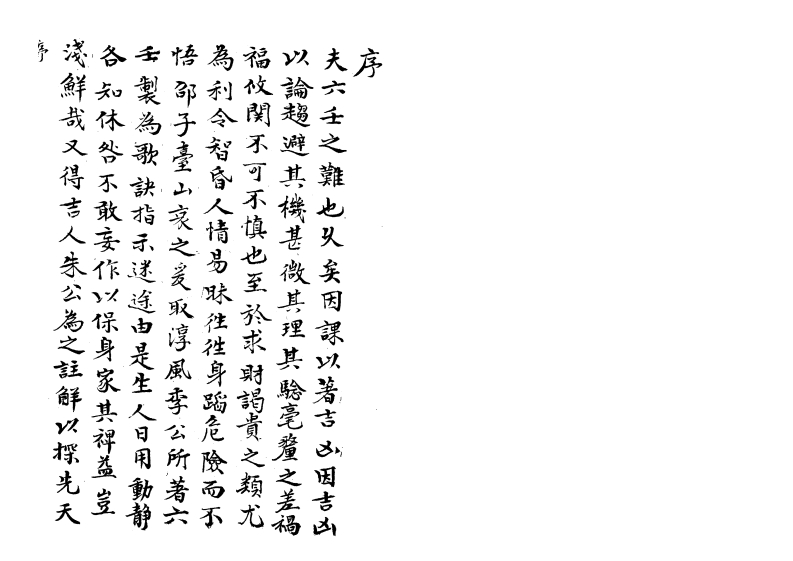 序
夫六壬之難也久矣因課以著吉凶因吉凶
以論趨避其機甚微其理其驗毫釐之差禍
福攸関不可不慎也至於求財謁貴之類尤
為利令智昏人情易昧徃徃身蹈危險而不
悟邵子臺山哀之爰取淳風季公所著六
壬製為歌訣指示迷途由是生人日用動静
各知休咎不敢妄作以保身家其裨益豈
淺鮮哉又得吉人朱公為之註解以探先天
序